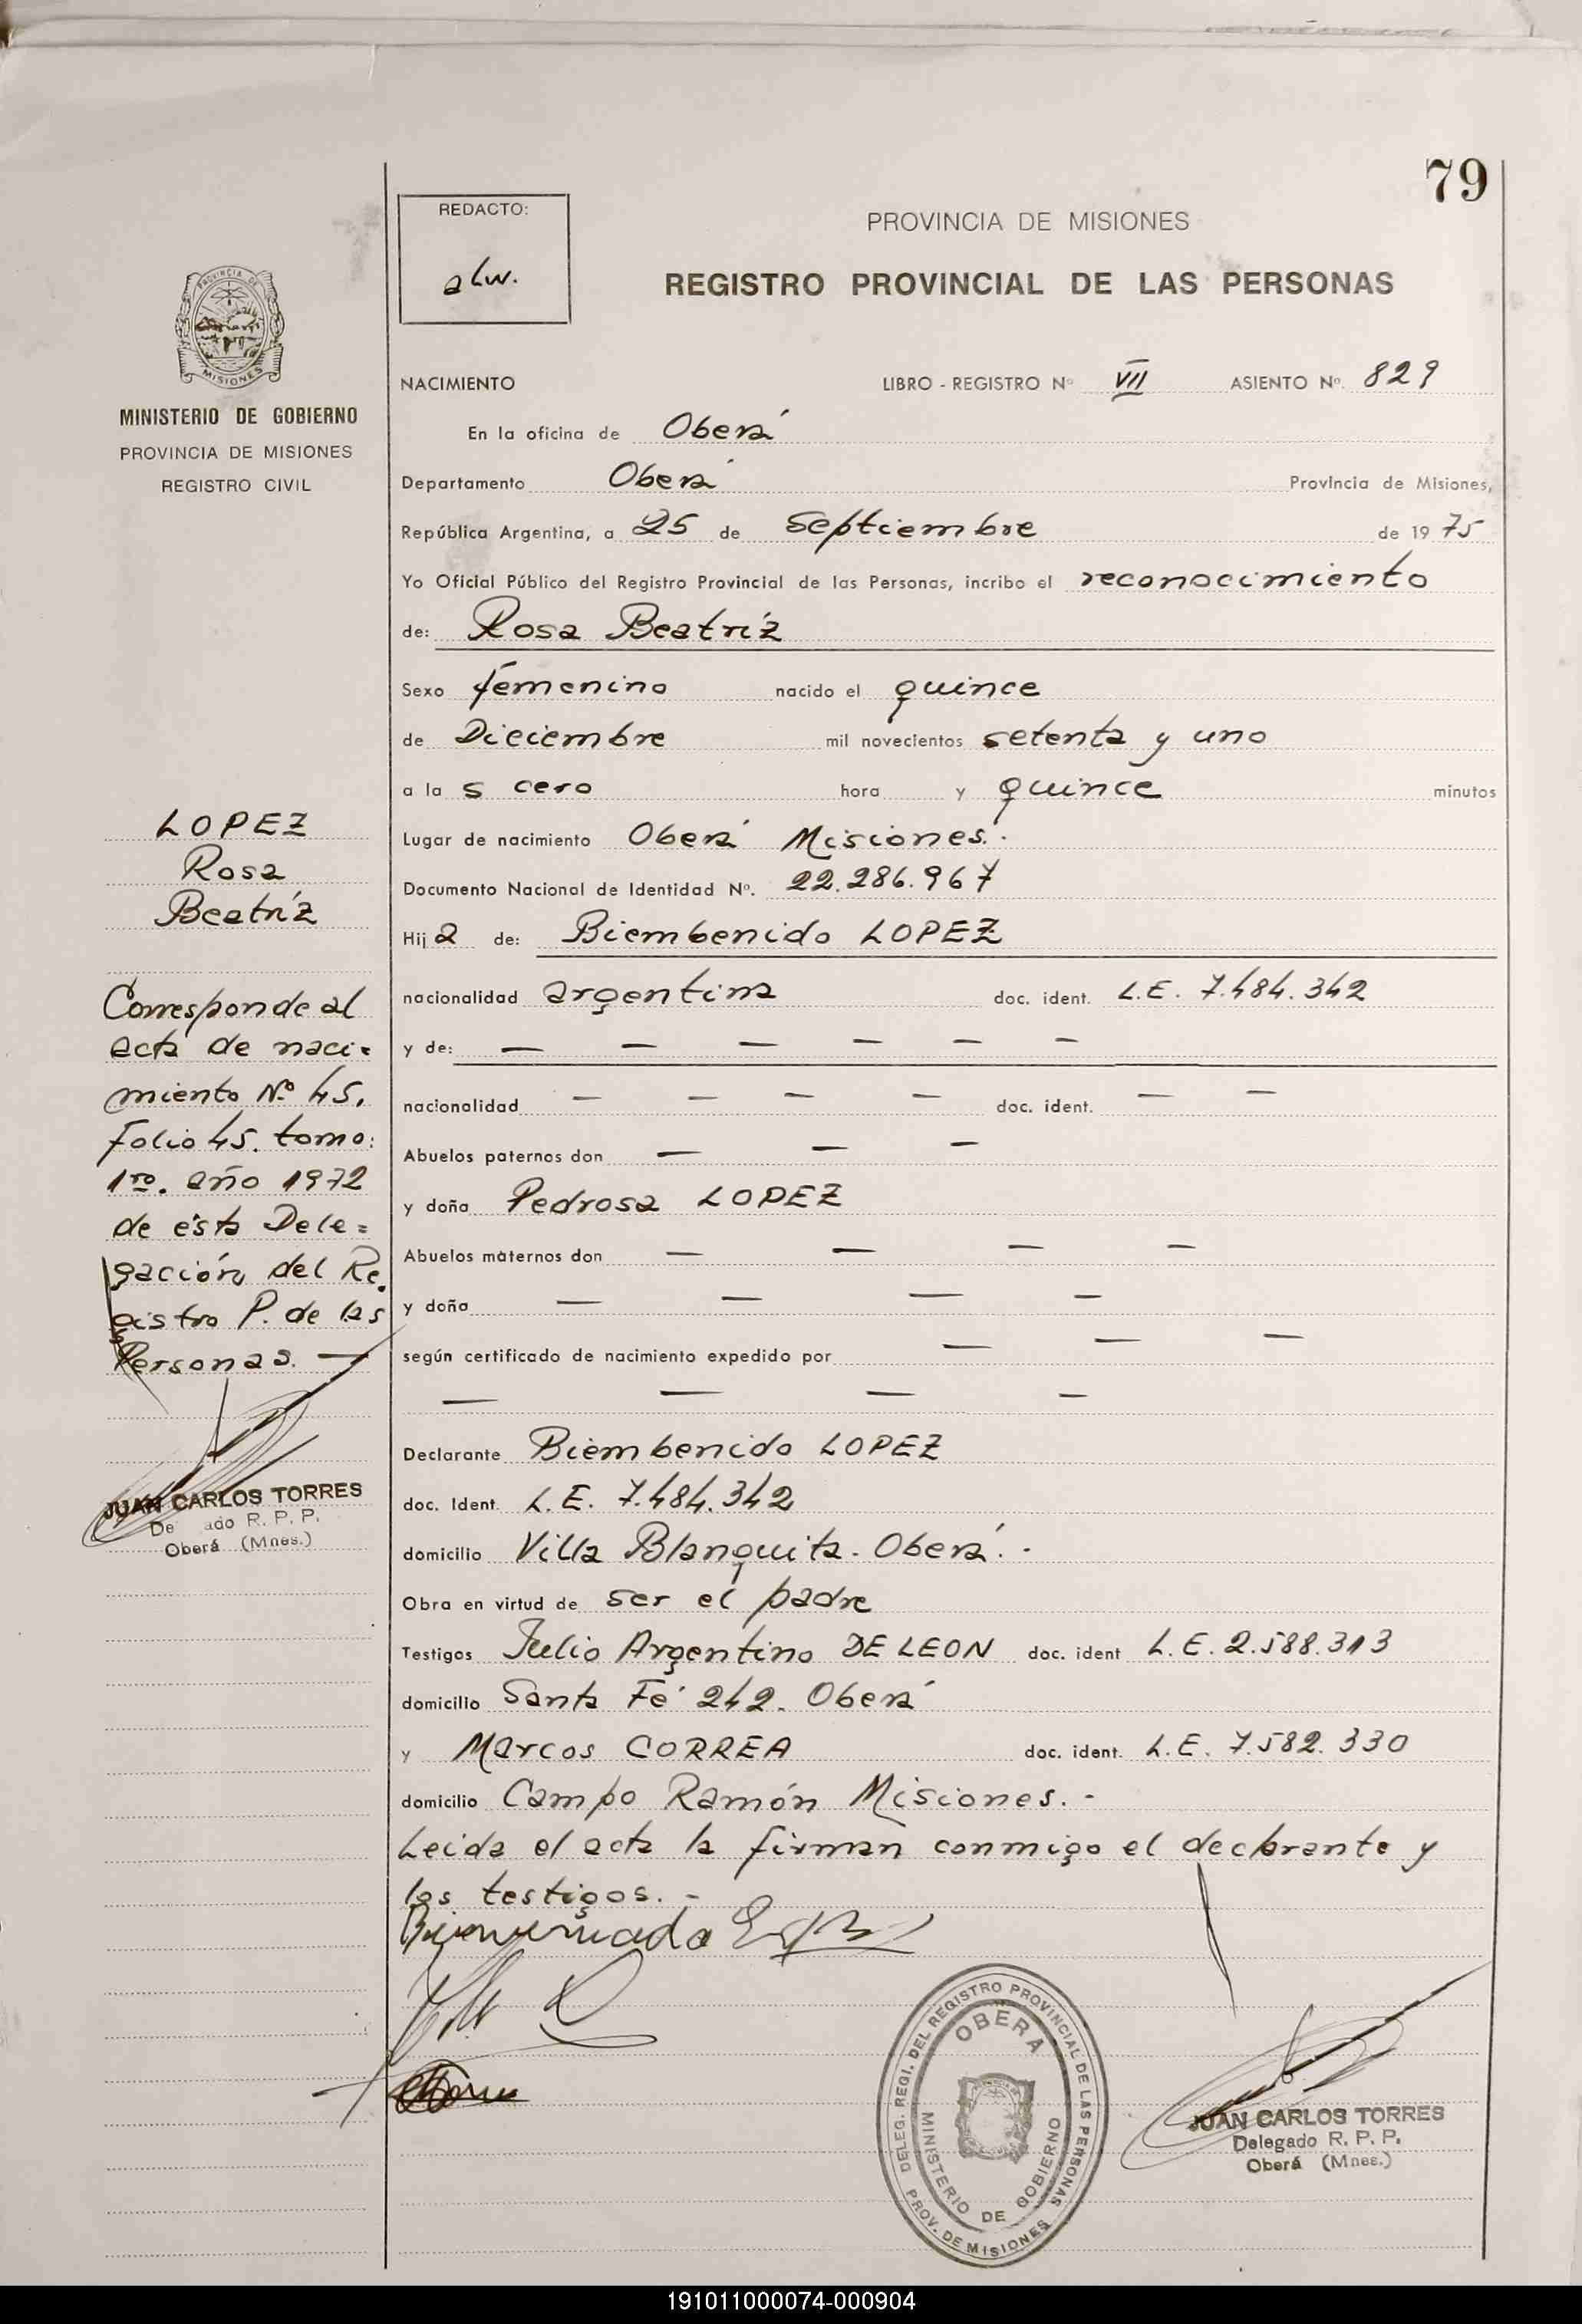 79
REDACTO:
alw.
PROVINCIA DE MISIONES
REGISTRO PROVINCIAL DE LAS PERSONAS
PROVINCIA DE
MISIONES
MINISTERIO DE GOBIERNO
PROVINCIA DE MISIONES
REGISTRO CIVIL
NACIMIENTO LIBRO - REGISTRO Nº VII ASIENTO Nº. 829
En la oficina de Oberá
Departamento Oberá Provincia de Misiones,
República Argentina, a 25 de Septiembre de 1975
Yo Oficial Público del Registro Provincial de las Personas, incribo el reconocimiento
de: Rosa Beatríz
Sexo femenino nacido el quince
de Diciembre mil novecientos setenta y uno
a la s cero hora y quince minutos
Lugar de nacimiento Oberá Misiones.-
Documento Nacional de Identidad Nº. 22.286.967
Hija de: Biembenido LOPEZ
nacionalidad argentina doc. ident. L.E. 7.484.342
y de: — — — — — —
nacionalidad — — — — doc. ident. — —
Abuelos paternos don — — —
y doña Pedrosa LOPEZ
Abuelos maternos don — — — —
y doña — — — —
según certificado de nacimiento expedido por — — —
— — — —
Declarante Biembenido LOPEZ
doc. Ident. L.E. 7.484.342
domicilio Villa Blanquita. Oberá.-
Obra en virtud de ser el padre
Testigos Julio Argentino DE LEON doc. ident L.E. 2.588.313
domicilio Santa Fé 242. Oberá
y Marcos CORREA doc. ident. L.E. 7.582.330
domicilio Campo Ramón Misiones.-
Leida el acta la firman conmigo el declarante y
los testigos.-
LOPEZ
Rosa
Beatríz
Corresponde al
acta de naci-
miento Nº 45.
Folio 45. tomo:
1ro. año 1972
de ésta Dele=
gación del Re.
gistro P. de las
Personas. —
JUAN CARLOS TORRES
De ado R. P. P.
Oberá (Mnes.)
DELEG. REGI. DEL REGISTRO PROVINCIAL DE LAS PERSONAS
OBERA
MINISTERIO DE GOBIERNO
PROV. DE MISIONES
JUAN CARLOS TORRES
Delegado R. P. P.
Oberá (Mnes.)
191011000074-000904